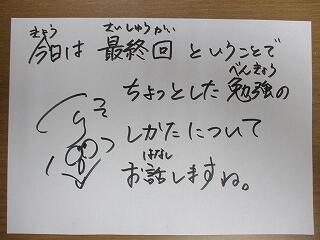 きょう さいしゅうかい
今日は 最終回 ということで
べんきょう
ちょっとした 勉強の
しかたについて
はなし
お話しますね。